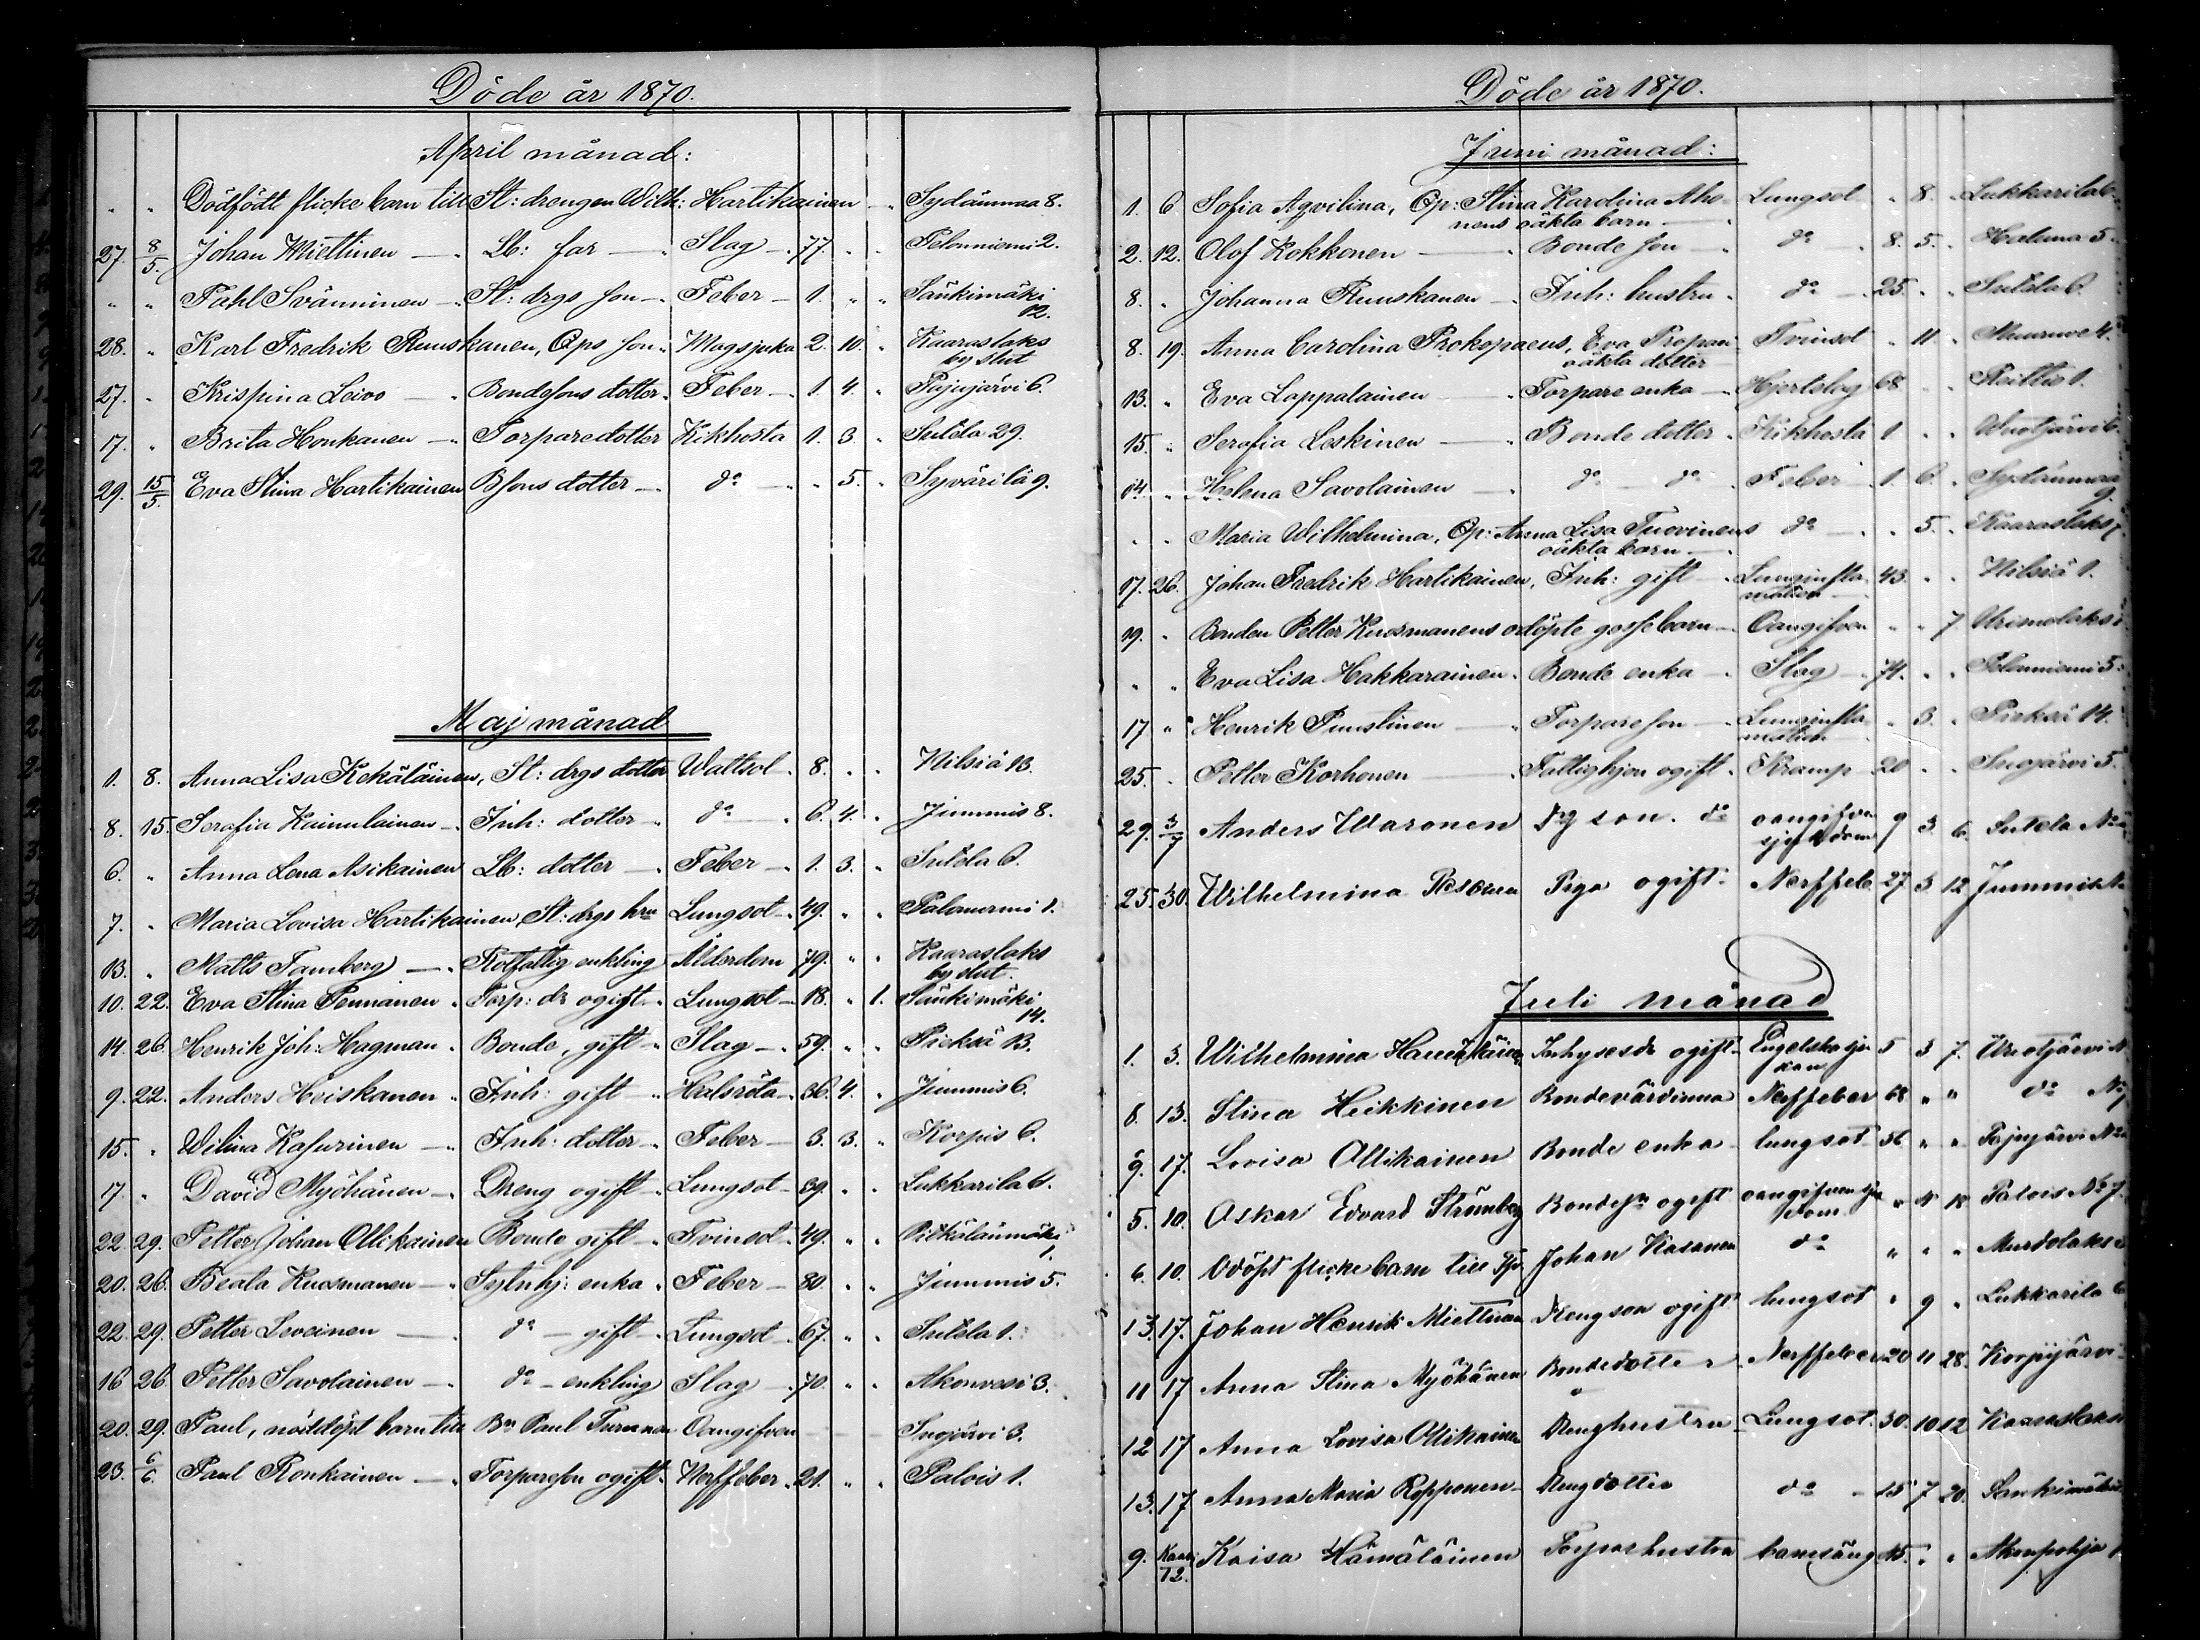 Döde år 1870.
April månad:
" " Dödfödt flicke barn till St: drengen Wilh: Hartikainen " Sydänmaa 8.
27. 8/5. Johan Miettinen — Lb: far — Slag — 77. " " Pelonniemi 2.
" " Påhl Svänninen — St: drgs son — Feber — 1. " " Sänkimäki 12.
28. " Karl Fredrik Ruuskanen, Gps son " Magsjuka 2. 10. " Kaaraslaks by slut
27. " Krispina Leivo — Bondesons dotter " Feber — 1. 4. " Pajujärvi 6.
17. " Brita Honkanen — Torparedotter Kikhosta 1. 3. " Sutela 29.
29. 15/5. Eva Stina Hartikainen Bsons dotter — do — " 5. " Syvärilä 9.
Maj månad
1. 8. Anna Lisa Kekäläinen, St: drgs dotter Wattsot " 8. " " Nilsiä 13.
8. 15. Serafia Kainulainen — Inh: dotter — do — 6. 4. " Jummis 8.
6. " Anna Lena Asikainen Lb: dotter — Feber — 1. 3. " Sutela 6.
7. " Maria Lovisa Hartikainen, St: drgs hru Lungsot — 49. " " Palonurmi 1.
13. " Matts Tamberg — Rotfattig enkling Ålderdom 79. " " Kaaraslaks by slut.
10. 22. Eva Stina Pennanen " Torp: dr ogift " Lungsot — 18. " 1. Sänkimäki 14.
14. 26. Henrik Joh: Hagman " Bonde, gift " Slag — 59. " " Pieksä 13.
9. 22. Anders Heiskanen " Inh: gift " Halsröta — 36. 4. " Jummis 6.
15. " Wilina Kasurinen — Inh: dotter — Feber — 3. 3. " Korpis 6.
17. " David Myöhänen — Dreng ogift — Lungsot — 39. " " Lukkarila
22. 29. Petter Johan Ollikainen Bonde gift — Tvinsot " 49. " " Pitkälänmäki 1.
20. 26. Beata Kuosmanen — Sytnhj: enka " Feber — 80. " " Jummis 5.
22. 29. Petter Leveinen — do — gift " Lungsot — 67. " " Sutela 1.
16 26. Petter Savolainen — do — enkling Slag — 70. " " Akonvesi 3.
20. 29. Paul, nöddöpt barn till Bn Paul Turunen Oangifven Suojärvi 3.
23. 6/6. Paul Ronkainen — Torpareson ogift " Nerffeber " 21. " " Palois 1.
Döde år 1870.
Juni månad:
1. 6. Sofia Aqvilina, Gp: Stina Karolina Aho- Lungsot " 8. " Lukkarila
nens oäkta barn —
2. 12. Olof Kokkonen — Bonde son " do " 8. 5. " Haluna 5.
8. " Johanna Ruuskanen — Inh: hustru " do — 25. " " Sutela 6.
8. 19. Anna Carolina Prokopaeus, Eva Tvinsot " 11 " Muuruve 4.
oäkta dotter —
13. " Eva Lappalainen — Torpare enka — Hjertslag 68 " " Reittiö 1.
15. " Serafia Leskinen — Bonde dotter " Kikhosta 1 " " Wuotjärvi
14. " Helena Savolainen — do — do " Feber " 1. 6. " Sydänmaa 9.
" " Maria Wilhelmina, Gp: Anna Lisa Tuovinens do — " 5. " Kaaraslaks
oäkta barn —
17. 26. Johan Fredrik Hartikainen, Inh: gift — Lunginflammation 43. " " Nilsiä 1.
19. " Bonden Petter Kuosmanens odöpte gossebarn — Oangifven " " 7
" " Eva Lisa Hakkarainen " Bonde enka — Slag — 74. " " Pelonniemi 5.
17 " Henrik Puustinen — Torpareson — Lunginflammation " 3. " Pieksä 14.
25. " Petter Korhonen — Fattighjon ogift " Kramp — 20 " " Suojärvi 5.
29. 3/7 Anders Waronen Drg son. do oangifven sjukdom 9 3. 6. Sutela No
25. 30. Wilhelmina Piga ogift Nerffeb 27 3 12 Jummis No
Juli månad
1. 3. Wilhelmina Inhysesdr ogift Engelska sjukan 5 3 7. Wuotjärvi N
8. 13. Stina Heikkinen Bondevärdinna Nerffeber 68 " " do No
9. 17. Lovisa Ollikainen Bonde enka lungsot 56 " " Pajujärvi No
5. 10. Oskar Edvard Strömberg Bondesn ogift oangifven sjukdom " 18 Palois No 7.
6. 10. Odöpt flicke barn till Johan Kasanen do " " " Murtolaks
13. 17. Johan Henrik Miettinen Drengson ogift lungsot " 9 " Lukkarila 6
11 17 Anna Stina Myöhänen Bondedotter Nerffeber 20 11 28. Korpijärvi
12 17 Anna Lovisa Ollikainen Drenghustru Lungsot. 30. 10 12. Kaaraslaks
13. 17 Anna Maria Repponen Drengdotter do — 15 7 20. Sänkimäki
9. 12. Kaisa Hämäläinen Torparhustru barnsäng 45. " "